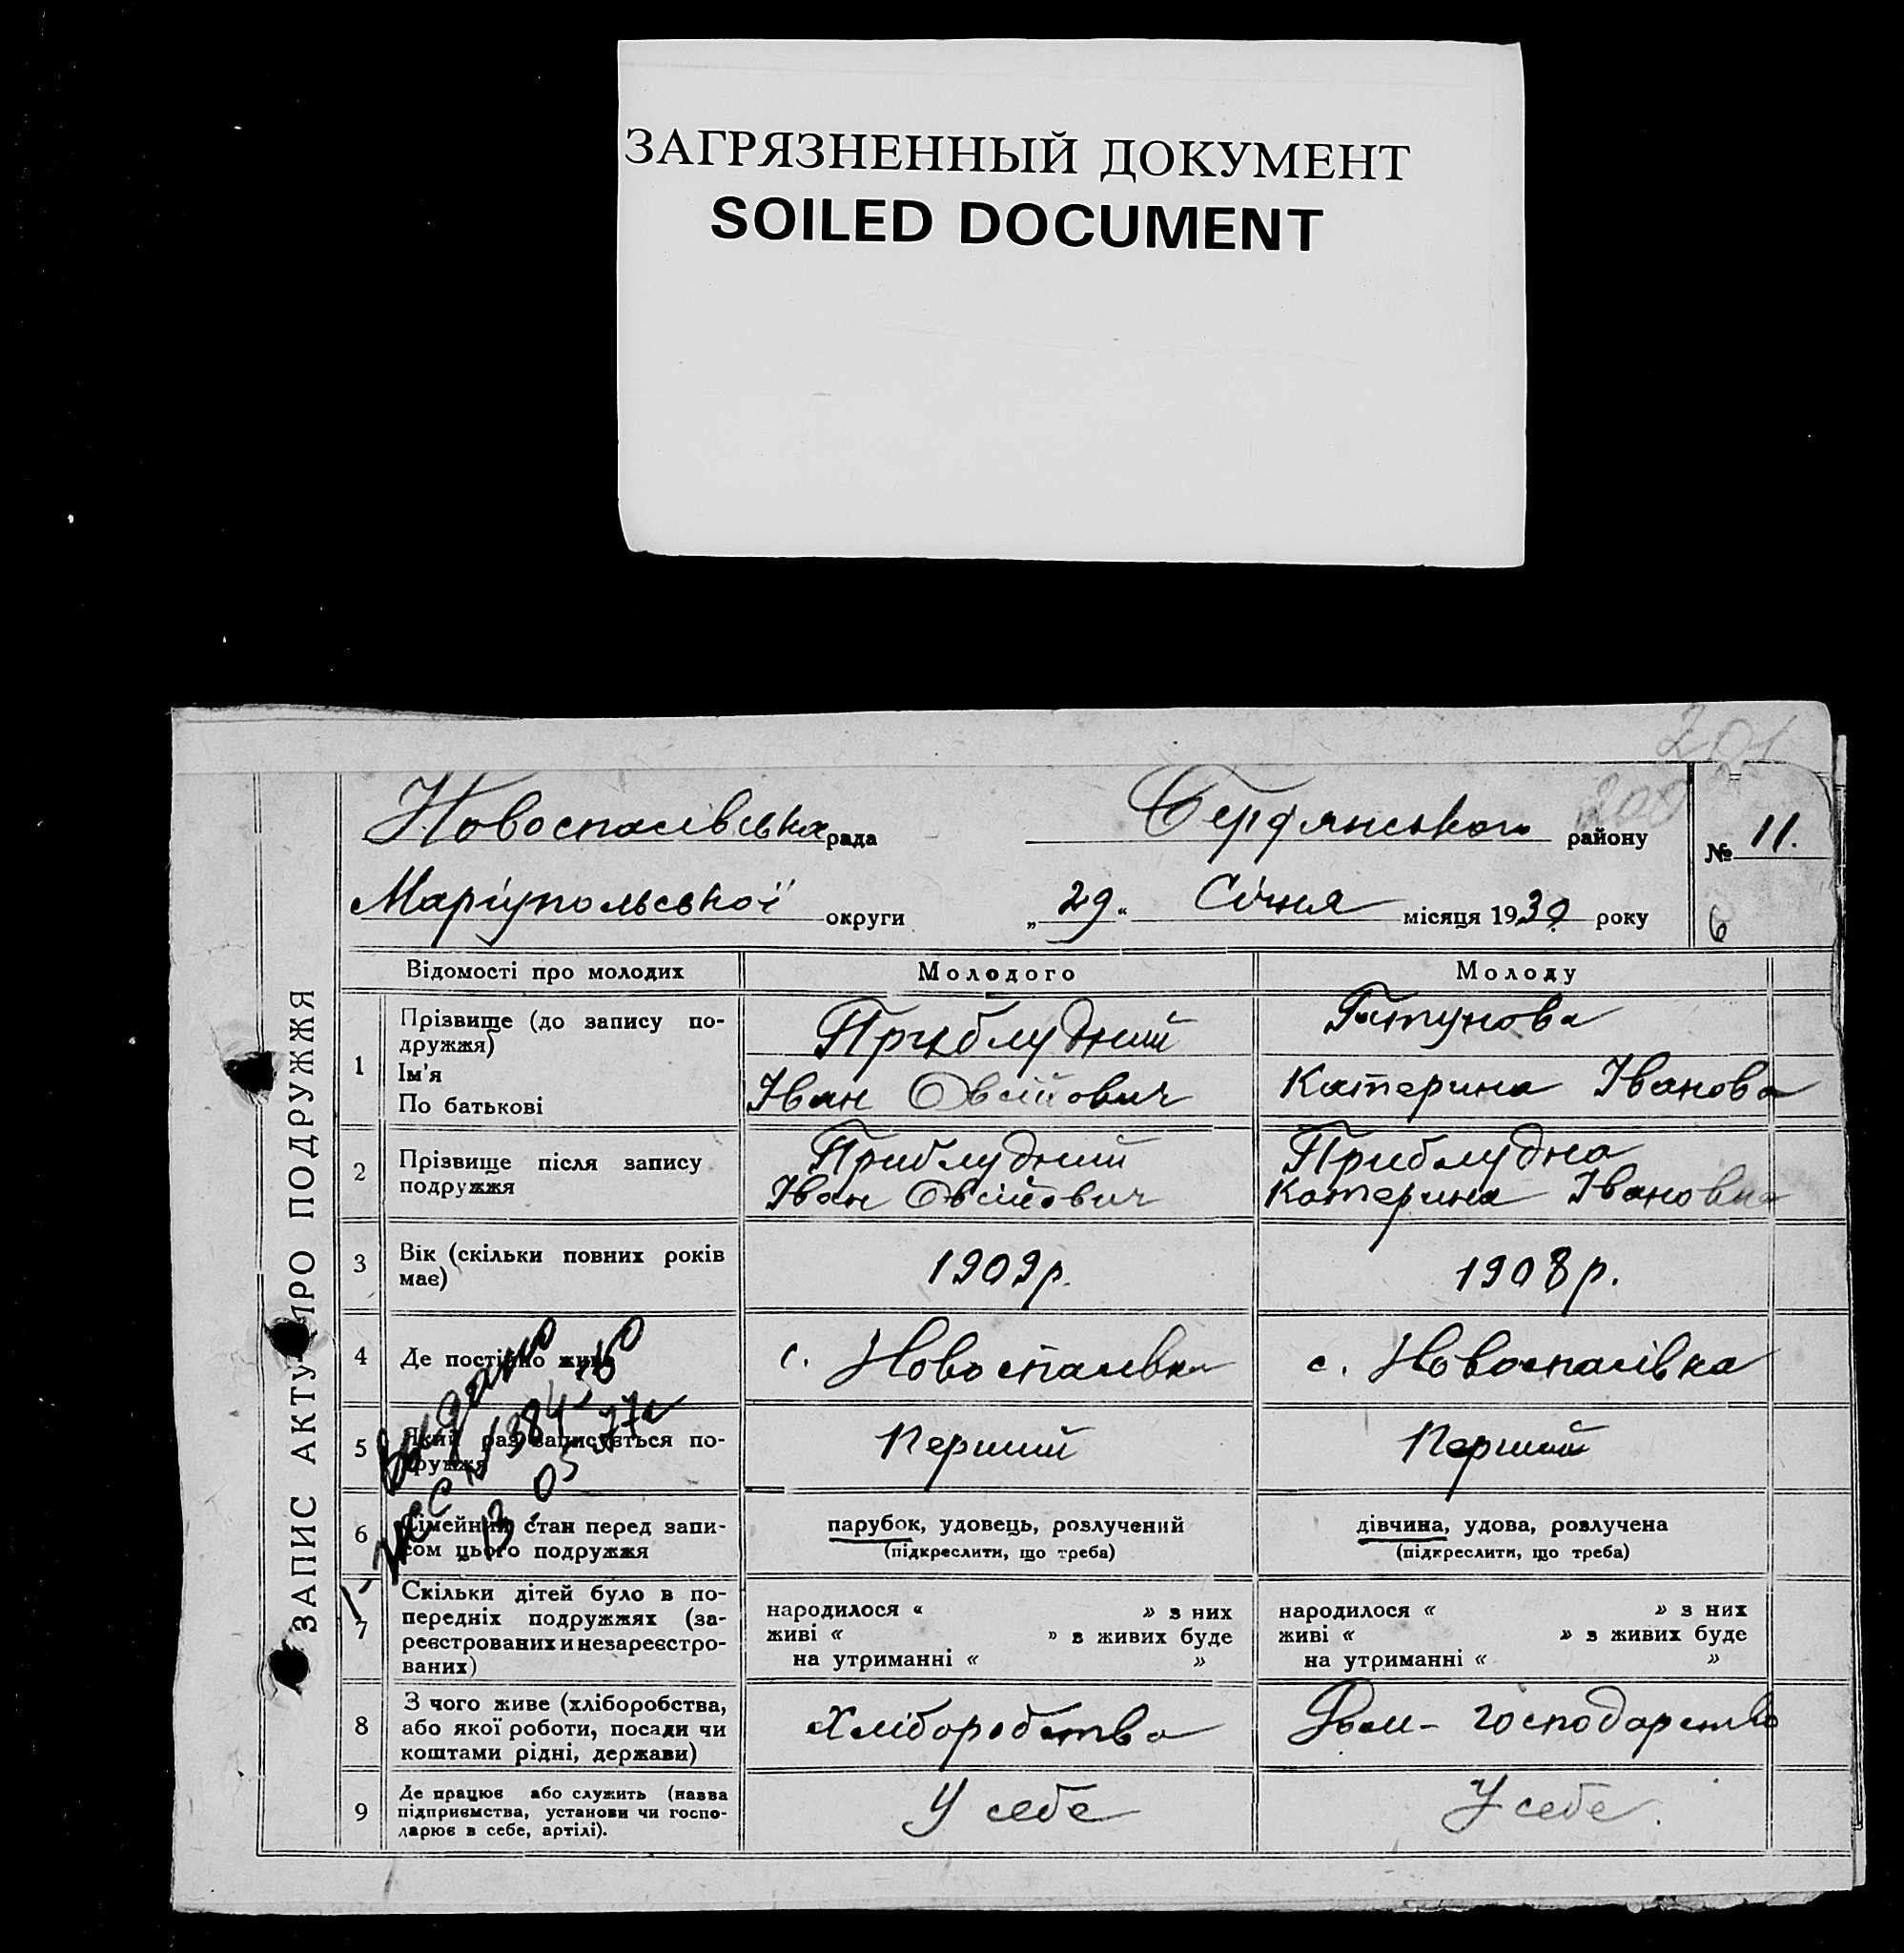 ЗАГРЯЗНЕННЫЙ ДОКУМЕНТ
SOILED DOCUMENT
201
200
Новоспасівська рада Бердянського району № 11.
Маріупольської округи „29“ Січня місяця 1930 року 6
ЗАПИС АКТУ ПРО ПОДРУЖЖЯ
Відомості про молодих Молодого Молоду
1 Прізвище (до запису по-
дружжя)
Ім'я
По батькові
Приблудний
Іван Овсійович
Катерина Іванова
2 Прізвище після запису
подружжя
Приблудний
Іван Овсійович
Приблудна
Катерина Івановна
3 Вік (скільки повних років
має)
1909 р. 1908 р.
4 Де постійно живе с. Новоспасівка с. Новоспасівка
5 Який раз записується по-
дружжя
Перший Перший
Выдано
13 05 77г
6 Сімейний стан перед запи-
сом цього подружжя
парубок, удовець, розлучений
(підкреслити, що треба)
дівчина, удова, розлучена
(підкреслити, що треба)
7 Скільки дітей було в по-
передніх подружжях (за-
реєстрованих и незареєстро-
ваних)
народилося « » з них
живі « » з живих буде
на утриманні « »
народилося « » з них
живі « » з живих буде
на утриманні « »
8 З чого живе (хліборобства,
або якої роботи, посади чи
коштами рідні, держави)
Хліборобство Дом-господарство
9 Де працює або служить (назва
підприємства, установи чи госпо-
дарює в себе, артілі).
У себе У себе.